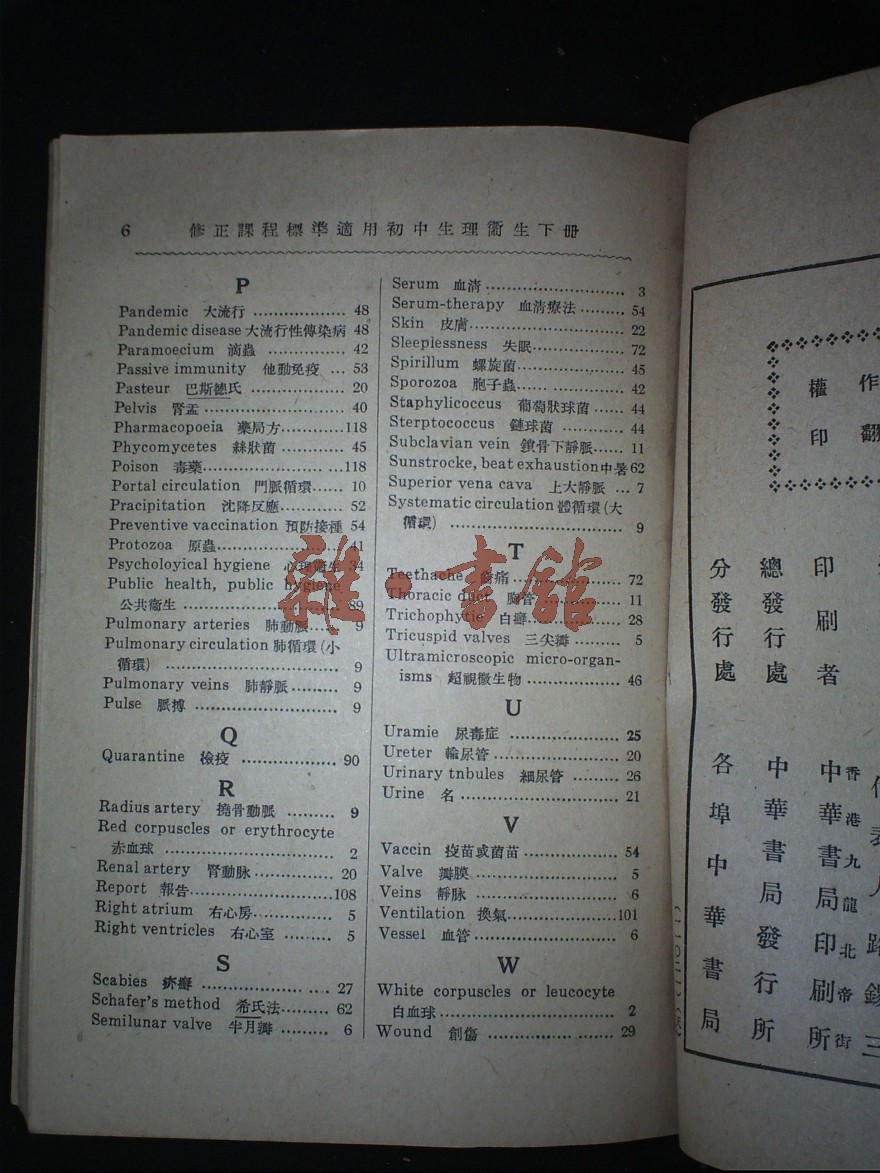 6 修正課程標準適用初中生理衞生下冊
P
Pandemic 大流行 ……………… 48
Pandemic disease 大流行性傳染病 48
Paramoecium 滴蟲 …………… 42
Passive immunity 他動免疫 … 53
Pasteur 巴斯德氏 ……………… 20
Pelvis 腎盂 ……………………… 40
Pharmacopoeia 藥局方…………118
Phycomycetes 絲狀菌 ………… 45
Poison 毒藥………………… …118
Portal circulation 門脈循環…… 10
Pracipitation 沈降反應………… 52
Preventive vaccination 預防接種 54
Protozoa 原蟲…………………… 41
Psycholoyical hygiene 心理衛生 34
Public health, public hygiene
公共衛生 ……………………… 89
Pulmonary arteries 肺動脈…… 9
Pulmonary circulation 肺循環(小
循環) …………………………… 9
Pulmonary veins 肺靜脈……… 9
Pulse 脈搏 ……………………… 9
Q
Quarantine 檢疫 ……………… 90
R
Radius artery 撓骨動脈 ……… 9
Red corpuscles or erythrocyte
赤血球 ………………………… 2
Renal artery 腎動脉…………… 20
Report 報告………………………108
Right atrium 右心房…………… 5
Right ventricles 右心室 ……… 5
S
Scabies 疥癬 ………………… … 27
Schafer's method 希氏法……… 62
Semilunar valve 半月瓣 ……… 6
Serum 血清 ……………………… 3
Serum-therapy 血清療法 ……… 54
Skin 皮膚………………………… 22
Sleeplessness 失眠……………… 72
Spirillum 螺旋菌………………… 45
Sporozoa 胞子蟲………………… 42
Staphylicoccus 葡萄狀球菌…… 44
Sterptococcus 鏈球菌 ………… 44
Subclavian vein 鎖骨下靜脈…… 11
Sunstrocke, beat exhaustion中暑 62
Superior vena cava 上大靜脈 … 7
Systematic circulation 體循環(大
循環) …………………………… 9
T
Teethache 齒痛………………… 72
Thoracic duct 胸管……………… 11
Trichophytie 白癬……………… 28
Tricuspid valves 三尖瓣 ……… 5
Ultramicroscopic micro-organ-
isms 超視微生物……………… 46
U
Uramie 尿毒症 ………………… 25
Ureter 輸尿管…………………… 20
Urinary tnbules 細尿管 ……… 26
Urine 名 ………………………… 21
V
Vaccin 疫苗或菌苗……………… 54
Valve 瓣膜 ……………………… 5
Veins 靜脉 ……………………… 6
Ventilation 換氣…………………101
Vessel 血管……………………… 6
W
White corpuscles or leucocyte
白血球…………………………… 2
Wound 創傷 …………………… 29
雜·書館
作 翻
權印
印刷者 中華書局印刷所
香港九龍北帝街
總發行處 中華書局發行所
分發行處 各埠中華書局